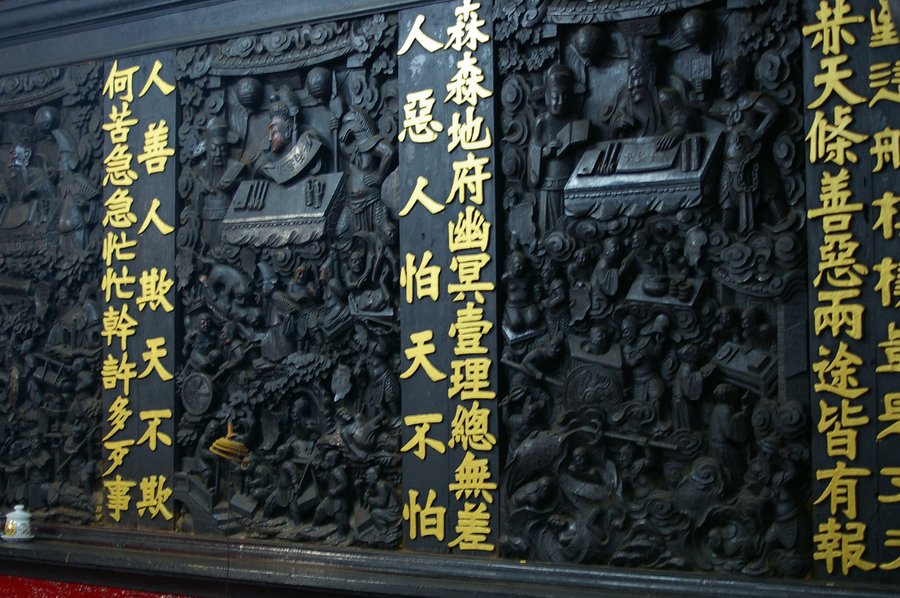 恭天條善惡兩途皆有報
森森地府幽冥壹理總無差
人惡人怕天不怕
人善人欺天不欺
何苦急急忙忙幹許多歹事